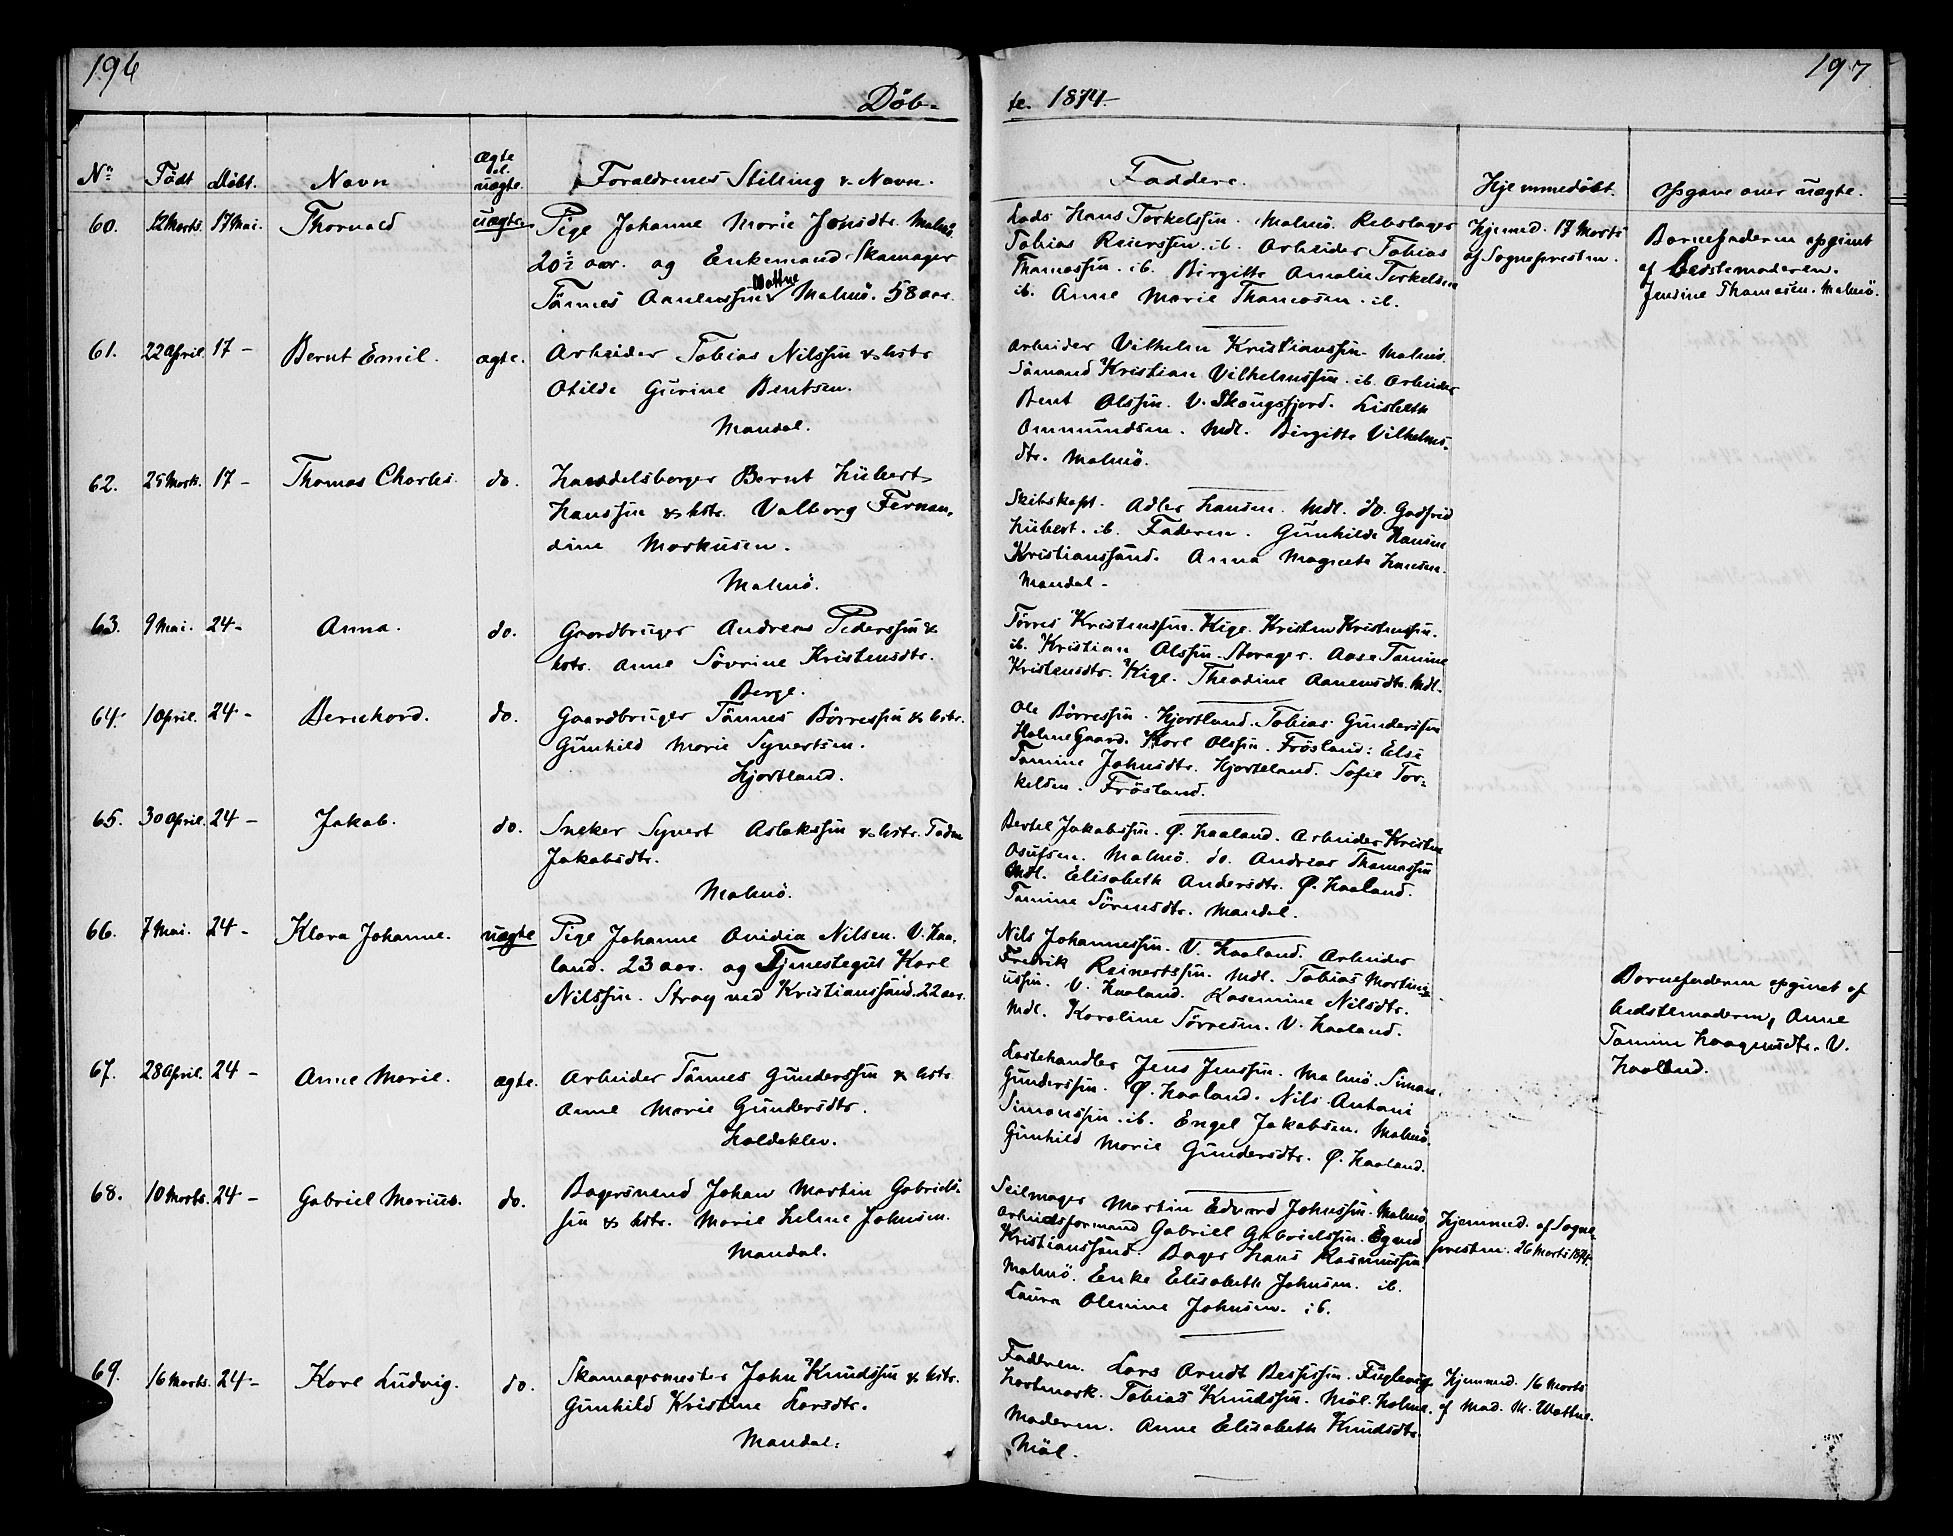 196
197
Döb-
te. 1874.
No
Födt
Döbt.
Navn
ægte
el.
uægte.
Foraldrenes Stilling & Navn.
Faddere.
Hjemmedøbt.
Opgave over uægte.
60. 12 Marts. 17 Mai. Thorvald uægte. Pige Johanne Marie Jonsdtr. Malmö.
20½ aar. og Enkemand Skomager
Tönnes Aanenssen Wattne Malmö. 58 aar.
Lods Hans Torkelssen. Malmö. Rebslager
Tobias Reierssen. ib. Arbeider Tobias
Thomassen. ib. Birgitte Amalie Torkelsen
ib. Anne Marie Thomasen. ib.
Hjemmed. 17 Marts
af Sognepresten.
Barnefaderen opgivet
af Bedstemoderen.
Jensine Thomasen. Malmö.
61. 22 April. 17 - Bernt Emil. ægte. Arbeider Tobias Nilssen & hstr.
Otilde Gurine Bentsen.
Mandal.
Arbeider Vilhelm Kristianssen. Malmö.
Sömand Kristian Vilhelmssen. ib. Arbeider
Bent Olssen. V. Skougsfjord. Lisbeth
Ommundsen. Mdl. Birgitte Vilhelms-
dtr. Malmö.
62. 25 Marts. 17 - Thomas Charles. do. Handelsborger Bernt Hübert
Hanssen & hstr. Valborg Fernan-
dine Markusen.
Malmö.
Skibskapt. Adler Hansen. Mdl. do. Godfred
Hübert. ib. Faderen. Gunhilde Hansen
Kristianssand. Anna Magrete Hansen.
Mandal.
63. 9 Mai. 24 - Anna. do. Gaardbruger Andreas Pederssen &
hstr. Anne Sövrine Kristensdtr.
Berge.
Törres Kristenssen. Kige. Kristen Kristenssen.
ib. Kristian Olssen. Storager. Aase Tamine
Kristensdtr. Kige. Theodine Aanensdtr. Mdl.
64. 1 April. 24 - Bernhard. do. Gaardbruger Tönnes Børressen & hstr.
Gunhild Marie Syvertsen.
Hjortland.
Ole Børressen. Hjortland. Tobias Gunderssen
Holme Gaard. Karl Olssen. Frösland. Else
Tamine Johnsdtr. Hjorteland. Sofie Tor-
kelsen. Frösland.
65. 30 April. 24 - Jakob. do. Sneker Syvert Aslakssen & hstr. Taden
Jakobsdtr.
Malmö.
Bertel Jakobssen. Ø. Haaland. Arbeider Kristen
Osufsen. Malmö. do. Andreas Thomassen
Mdl. Elisabeth Andersdtr. Ø. Haaland.
Tamine Sörensdtr. Mandal.
66. 7 Mai. 24 - Klara Johanne. uægte Pige Johanne Ovidia Nilsen. V. Haa-
land. 23 aar. og Tjenestegut Karl
Nilssen. Stray ved Kristianssand. 22 aar.
Nils Johannessen. V. Haaland. Arbeider
Fredrik Reinertssen. Mdl. Tobias Martini-
ussen. V. Haaland. Rasemine Nilsdtr.
Mdl. Karoline Törresen. V. Haaland.
Barnefaderen opgivet af
bedstemoderen, Anne
Tamine Haagensdtr. V.
Haaland.
67. 28 April. 24 - Anne Marie. ægte. Arbeider Tönnes Gunderssen & hstr.
Anne Marie Gundersdtr.
Holdeklev.
Lostehandler Jens Jenssen. Malmö. Simon
Gunderssen. Ø. Haaland. Nils Antoni
Simonssen. ib. Engel Jakobsen. Malmö.
Gunhild Marie Gundersdtr. Ø. Haaland.
68. 10 Marts. 24 - Gabriel Marius. do. Bagersvend Johan Martin Gabriels-
sen & hstr. Marie Helene Johnsen.
Mandal.
Seilmager Martin Edvard Johnssen. Malmö
Arbeidsformand Gabriel Gabrielssen. Egend
Kristianssand. Bager Hans Rasmussen
Malmö. Enke Elisabeth Johnsen. ib.
Laura Olenine Johnsen. ib.
Hjemmed. af Sogne-
presten. 26 Marts 1874.
69. 16 Marts. 24 - Karl Ludvig. do. Skomagermester John Knudssen & hstr.
Gunhild Kristine Larsdtr.
Mandal.
Faderen. Lars Arndt Bessesen. Fuglevig
Hartmark. Tobias Knudssen. Möl. Holme.
Moderen. Anne Elisabeth Knudsdtr.
Möl.
Hjemmed. 16 Marts
af Mad. M. Wattne.